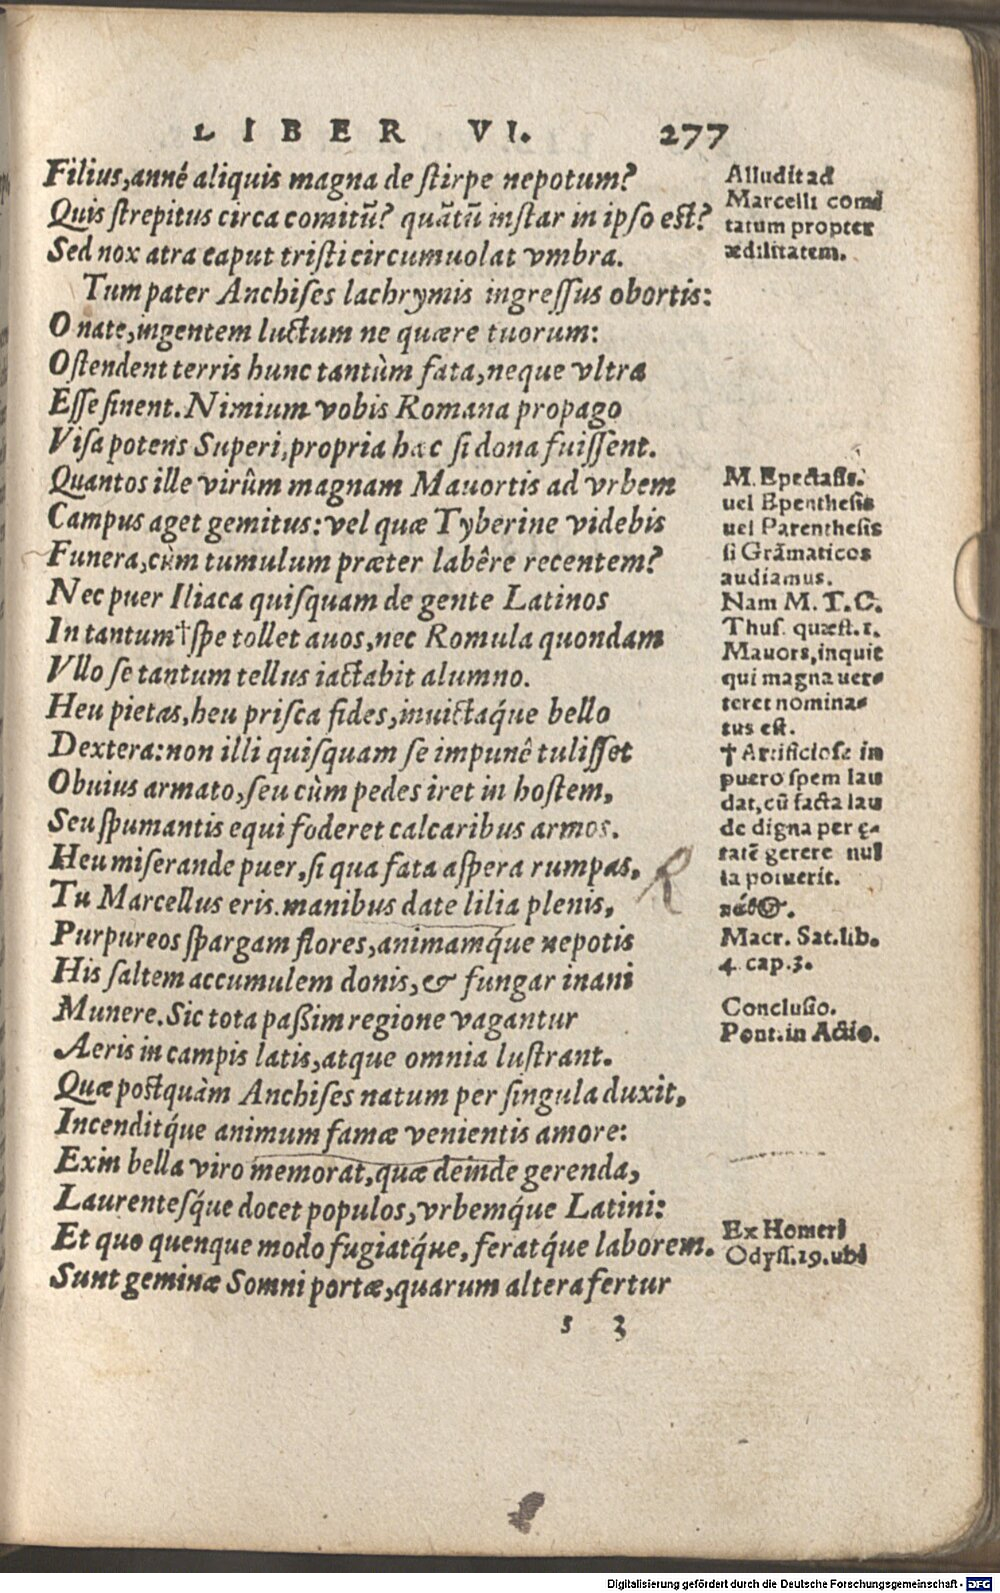 LIBER VI. 277
Filius, anné aliquis magna de ſtirpe nepotum?
Quis ſtrepitus circa comitũ? quãtũ inſtar in ipſo eſt?
Sed nox atra caput triſti circumuolat vmbra.
Tum pater Anchiſes lachrymis ingreſſus obortis:
O nate, ingentem luctum ne quære tuorum:
Oſtendent terris hunc tantùm fata, neque vltra
Eſſe ſinent. Nimium vobis Romana propago
Viſa potens Superi, propria hæc ſi dona fuiſſent.
Quantos ille virûm magnam Mauortis ad vrbem
Campus aget gemitus: vel quæ Tyberine videbis
Funera, cùm tumulum præter labêre recentem?
Nec puer Iliaca quiſquam de gente Latinos
In tantum † ſpe tollet auos, nec Romula quondam
Vllo ſe tantum tellus iactabit alumno.
Heu pietas, heu priſca fides, inuictáque bello
Dextera: non illi quiſquam ſe impunê tuliſſet
Obuius armato, ſeu cùm pedes iret in hoſtem,
Seu ſpumantis equi foderet calcaribus armos.
Heu miſerande puer, ſi qua fata aſpera rumpas,
Tu Marcellus eris. manibus date lilia plenis,
Purpureos ſpargam flores, animamq́ue nepotis
His ſaltem accumulem donis, & fungar inani
Munere. Sic tota paßim regione vagantur
Aeris in campis latis, atque omnia luſtrant.
Quæ poſtquàm Anchiſes natum per ſingula duxit,
Incenditq́ue animum famæ venientis amore:
Exin bella viro memorat, quæ deinde gerenda,
Laurenteſq́ue docet populos, vrbemq́ue Latini:
Et quo quenque modo fugiatq́ue, feratq́ue laborem.
Sunt geminæ Somni portæ, quarum altera fertur
s 3
Alludit ad
Marcelli comi
tatum propter
ædilitatem.
M. Epectaſis.
uel Epenthesis
uel Parenthesis
ſi Grãmaticos
audiamus.
Nam M. T. C.
Thuſ. quæſt. 1.
Mauors, inquit
qui magna uer-
teret nomina-
tus eſt.
† Artificioſe in
puero ſpem lau
dat, cũ facta lau
de digna per ę-
tatẽ gerere nul
la potuerit.
Macr. Sat. lib.
4. cap. 3.
Concluſio.
Pont. in Actio.
Ex Homeri
Odyſſ. 19. ubi
R
Digitalisierung gefördert durch die Deutsche Forschungsgemeinschaft - DFG